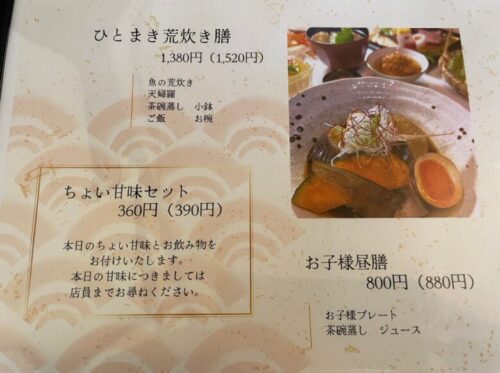 ひとまき荒炊き膳
1,380円（1,520円）
魚の荒炊き
天婦羅
茶碗蒸し　小鉢
ご飯　お椀
ちょい甘味セット
360円（390円）
本日のちょい甘味とお飲み物を
お付けいたします。
本日の甘味につきましては
店員までお尋ねください。
お子様昼膳
800円（880円）
お子様プレート
茶碗蒸し　ジュース